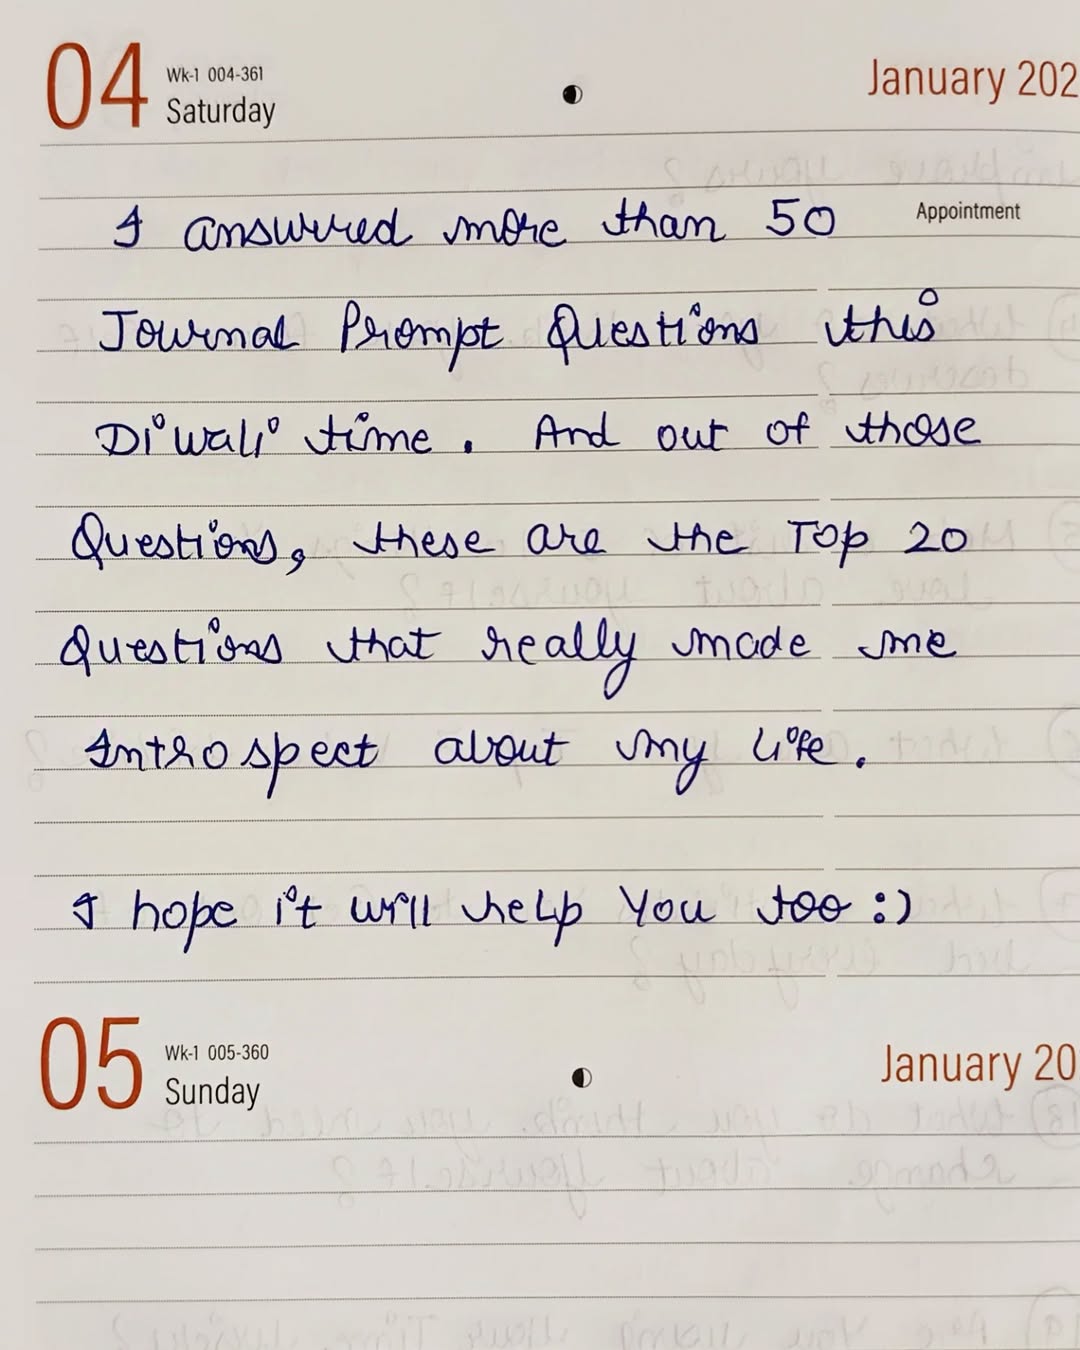 04 Wk-1 004-361 January 202
Saturday
Appointment
I answered more than 50
Journal Prompt Questions this
Diwali time. And out of those
Questions, these are the Top 20
Questions that really made me
Introspect about my life.
I hope it will help you too :)
05 Wk-1 005-360 January 20
Sunday